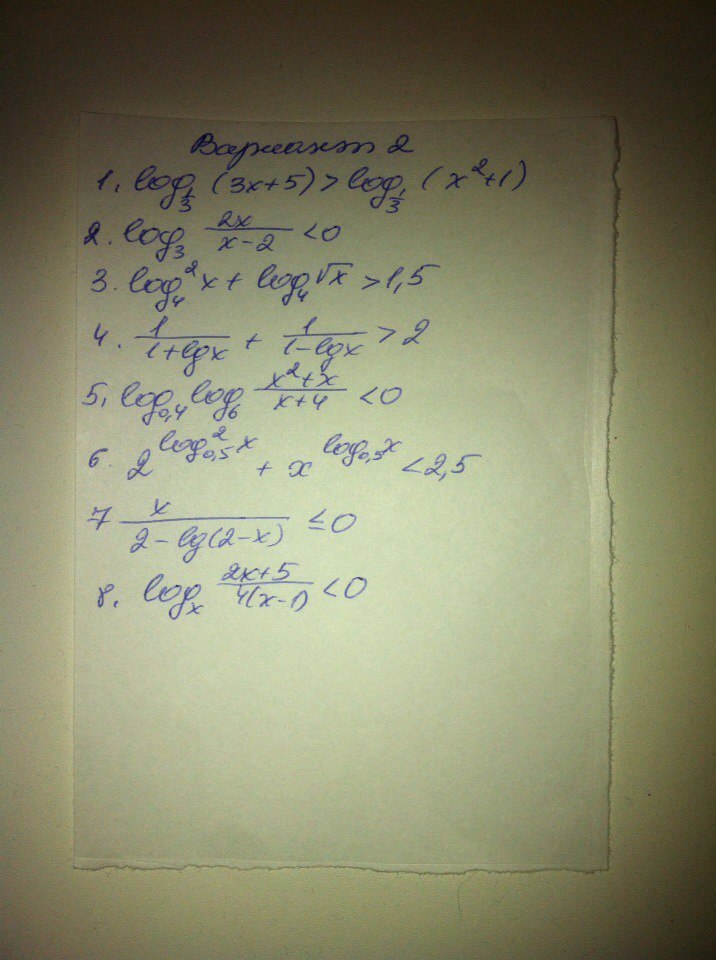 Вариант 2
1. log_{1/3} (3x+5) > log_{1/3} (x²+1)
2. log₃ \frac{2x}{x-2} < 0
3. log₄² x + log₄ √x > 1,5
4. \frac{1}{1+lgx} + \frac{1}{1-lgx} > 2
5. log_{0,4} log₆ \frac{x²+x}{x+4} < 0
6. 2^{log²_{0,5} x} + x^{log_{0,5} x} < 2,5
7 \frac{x}{2-lg(2-x)} ≤ 0
8. log_x \frac{2x+5}{4(x-1)} < 0